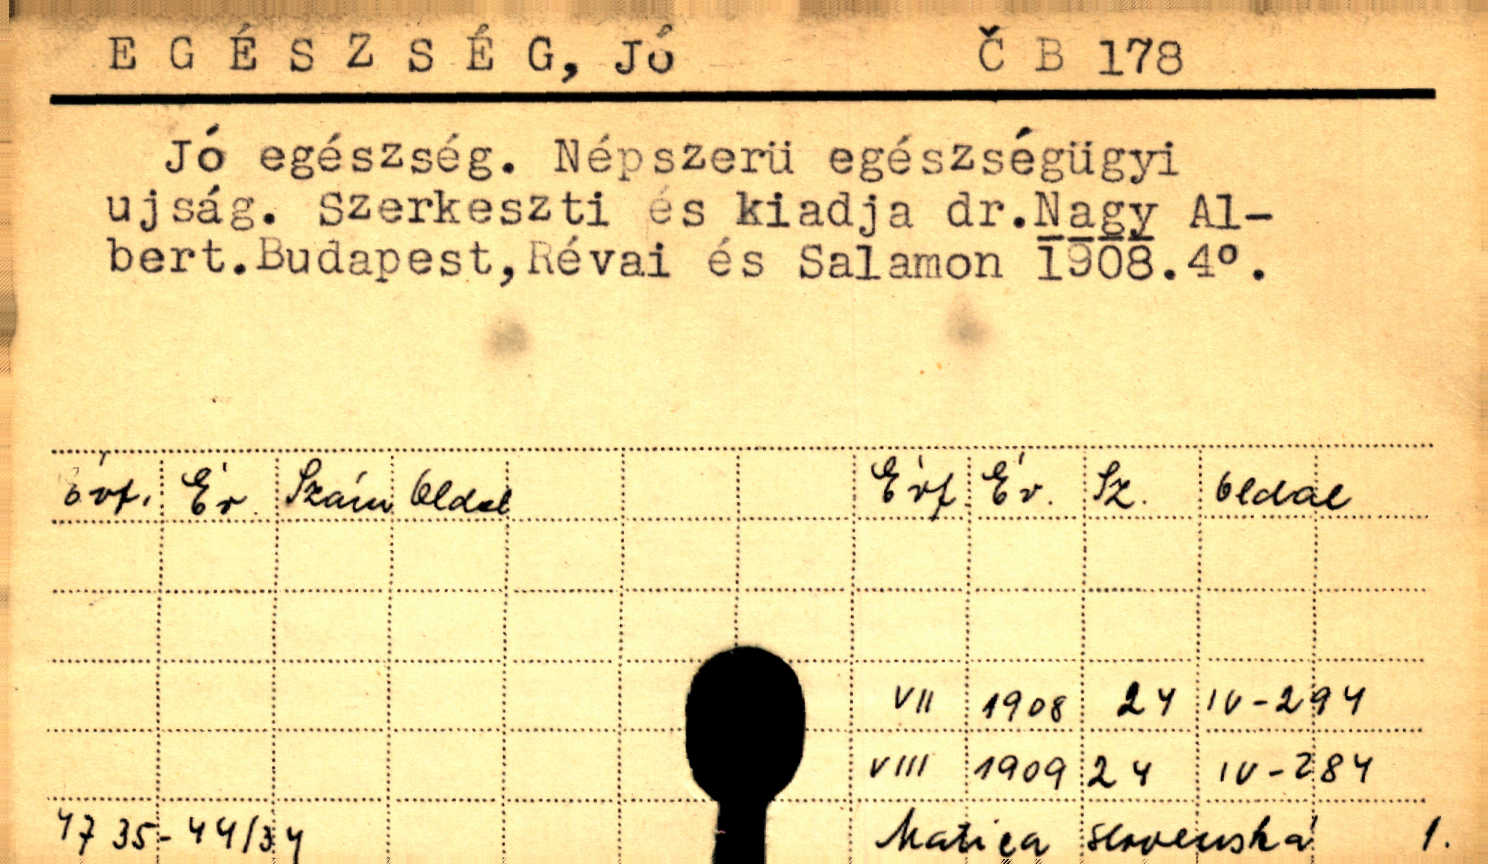 EGÉSZSÉG, Jó Č B 178
Jó egészség. Népszerü egészségügyi
ujság. Szerkeszti és kiadja dr.Nagy Al-
bert.Budapest,Révai és Salamon 1908.4°.
Évf. Év. Szám Oldal Évf. Év. Sz. Oldal
VII 1908 24 IV-294
VIII 1909 24 IV-284
4735-44/34 Matica slovenská 1.